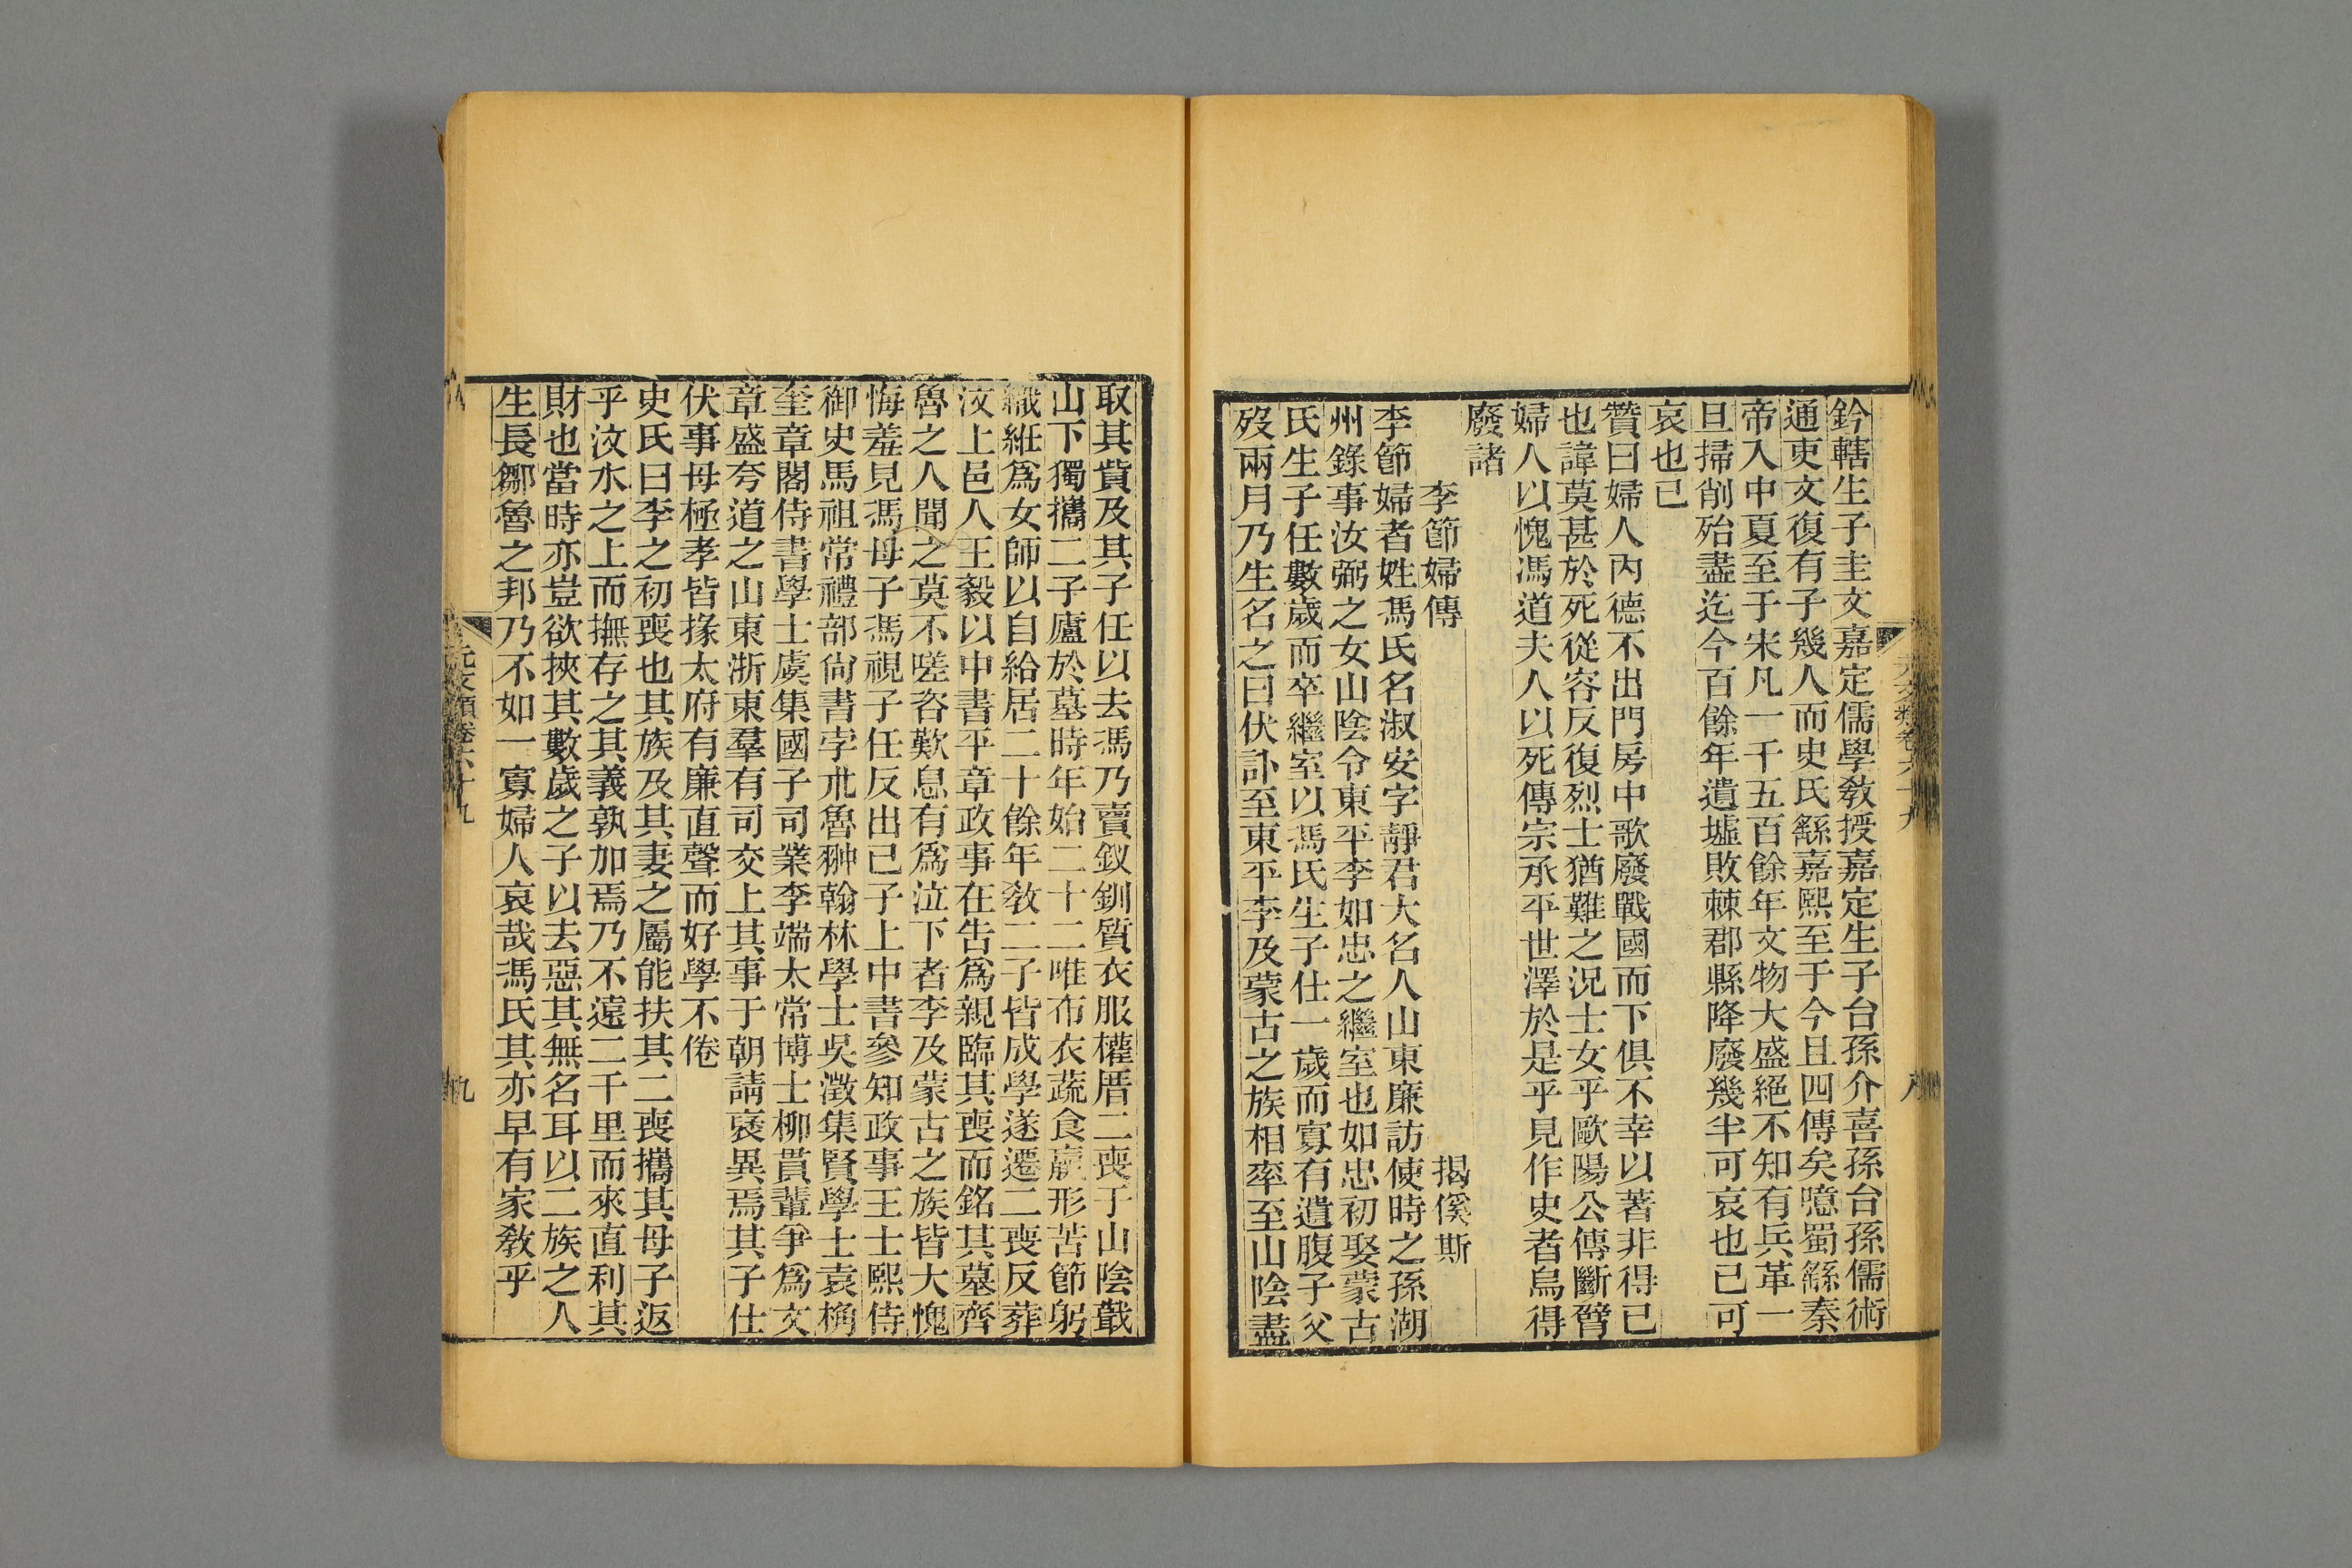 鈐轄生子圭文嘉定儒學敎授嘉定生子台孫介喜孫台孫儒術
通吏文復有子幾人而史氏繇嘉熙至于今且四傳矣噫蜀繇秦
帝入中夏至于宋凡一千五百餘年文物大盛絕不知有兵革一
旦掃削殆盡迄今百餘年遺墟敗棘郡縣降廢幾半可哀也已可
哀也已
贊曰婦人內德不出門房中歌廢戰國而下俱不幸以著非得已
也諱莫甚於死從容反復烈士猶難之況士女乎歐陽公傳斷臂
婦人以愧馮道夫人以死傳宗承平世澤於是乎見作史者烏得
廢諸
李節婦傳　揭傒斯
李節婦者姓馮氏名淑安字靜君大名人山東廉訪使時之孫湖
州錄事汝弼之女山陰令東平李如忠之繼室也如忠初娶蒙古
氏生子任數歲而卒繼室以馮氏生子仕一歲而寡有遺腹子父
歿兩月乃生名之曰伏訃至東平李及蒙古之族相率至山陰盡
取其貲及其子任以去馮乃賣釵釧質衣服權厝二喪于山陰蕺
山下獨攜二子廬於墓時年始二十二唯布衣蔬食羸形苦節躬
織紝爲女師以自給居二十餘年敎二子皆成學遂遷二喪反葬
汶上邑人王毅以中書平章政事在告爲親臨其喪而銘其墓齊
魯之人聞之莫不嗟咨歎息有爲泣下者李及蒙古之族皆大愧
悔羞見馮母子馮視子任反出已子上中書參知政事王士熙侍
御史馬祖常禮部尙書孛朮魯翀翰林學士吳澂集賢學士袁桷
奎章閣侍書學士虞集國子司業李端太常博士柳貫輩爭爲文
章盛夸道之山東浙東羣有司交上其事于朝請裦異焉其子仕
伏事母極孝皆掾太府有廉直聲而好學不倦
史氏曰李之初喪也其族及其妻之屬能扶其二喪攜其母子返
乎汶水之上而撫存之其義孰加焉乃不遠二千里而來直利其
財也當時亦豈欲挾其數歲之子以去惡其無名耳以二族之人
生長鄒魯之邦乃不如一寡婦人哀哉馮氏其亦早有家敎乎
元文類卷六十九　九